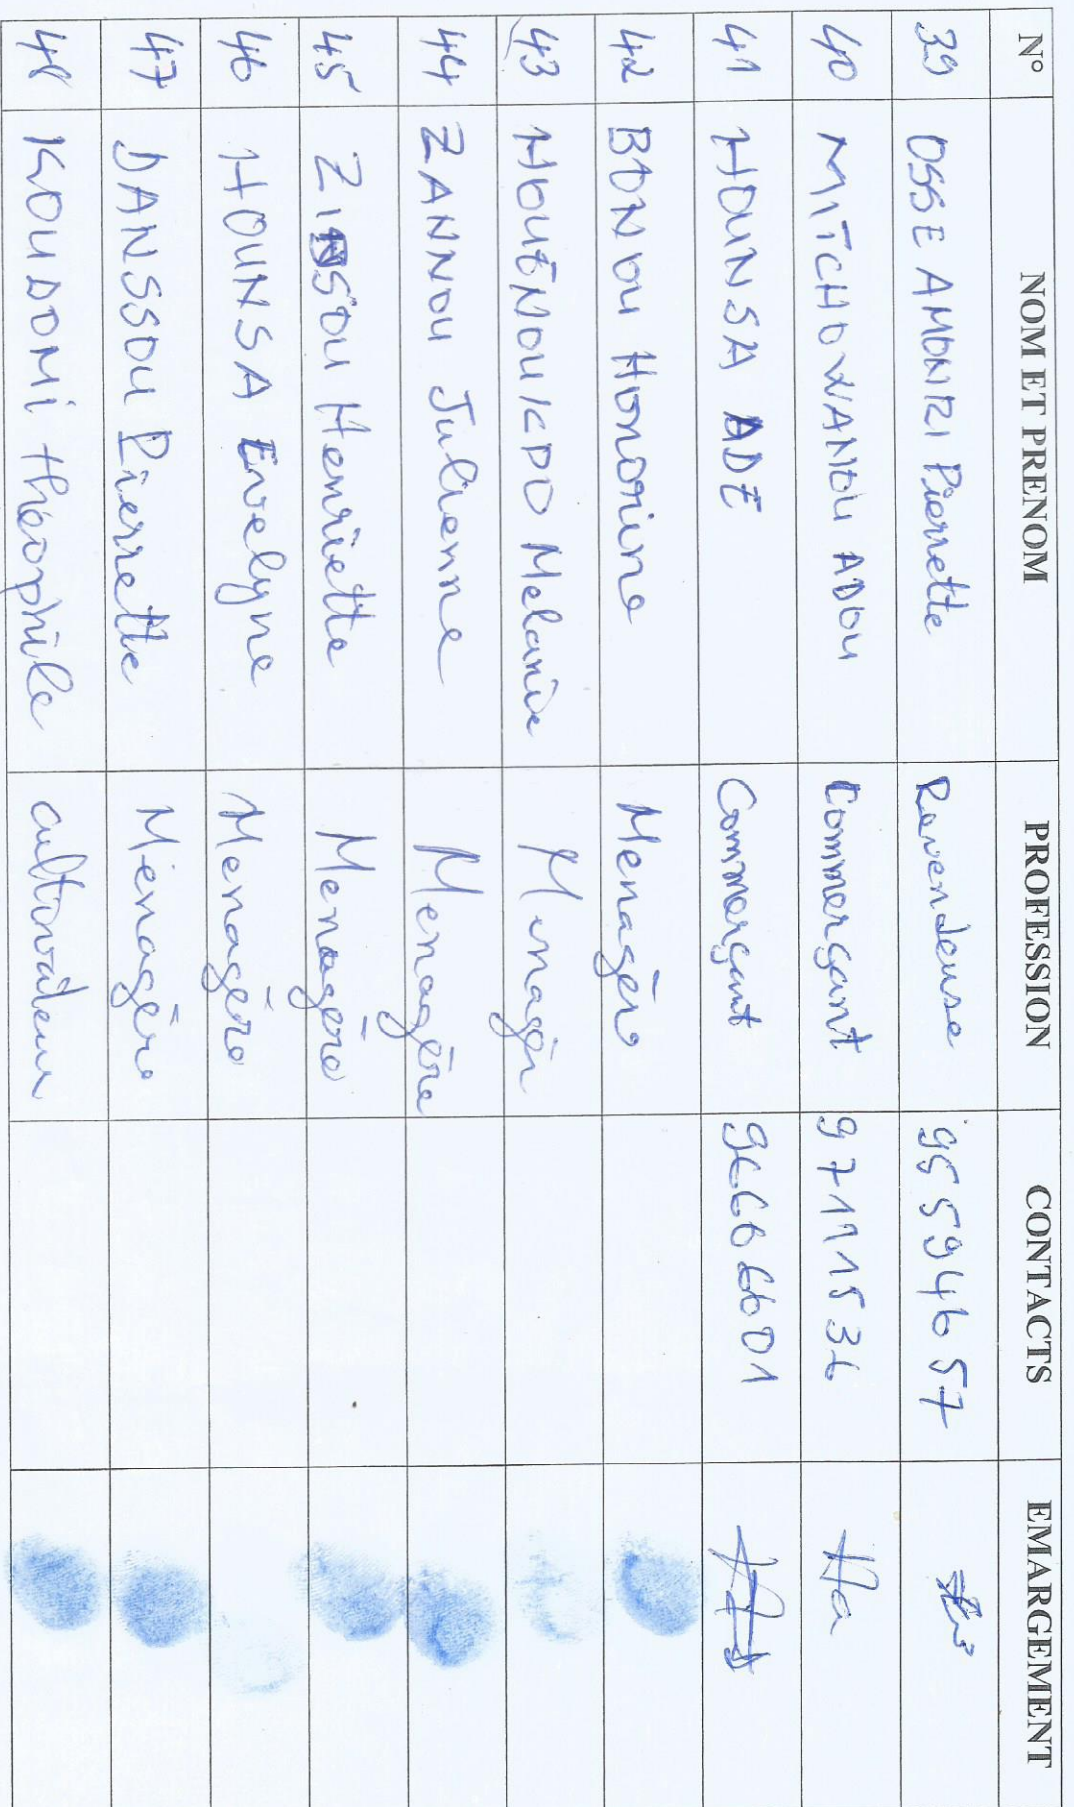 N° NOM ET PRENOM PROFESSION CONTACTS EMARGEMENT
39 OSSE AMONRI Pierrette Revendeuse 95594657
40 MITCHOWANOU ADOU Commerçant 97111536
41 HOUNSA ADE Commerçant 96666601
42 BONOU Honorine Menagère
43 HOUÉNOUKPO Melanie Menagèr
44 ZANNOU Julienne Menagère
45 ZINSSOU Henriette Menagère
46 HOUNSA Evelyne Menagère
47 DANSSOU Pierrette Ménagère
48 KOUDOMI théophile cultivateur